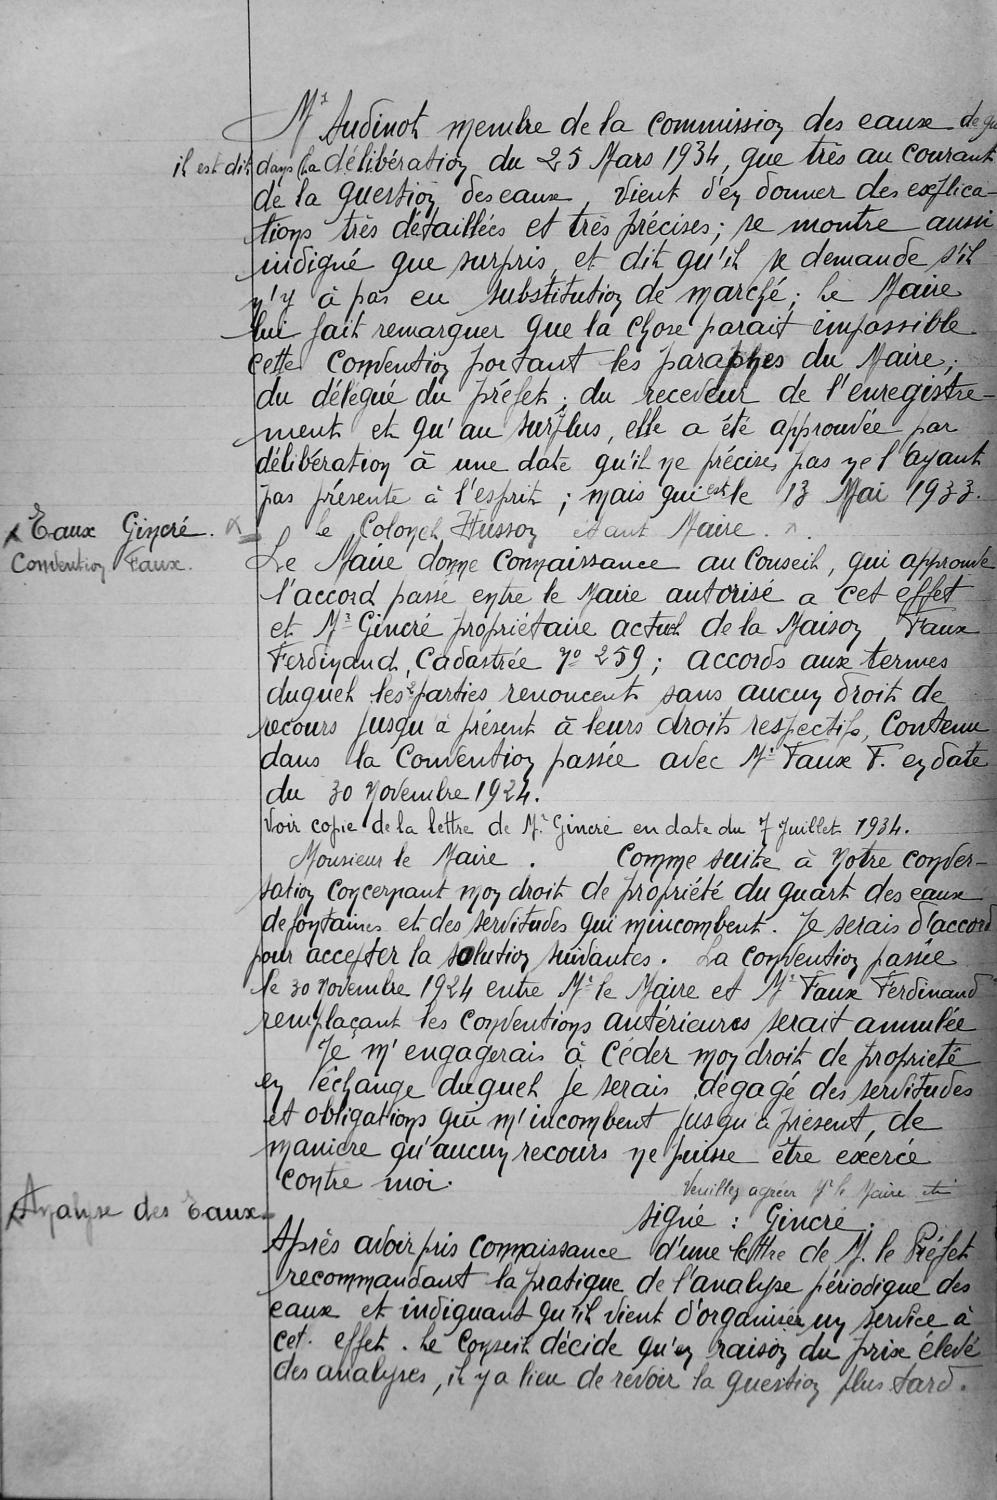 Mr Audinot membre de la commission des eaux de qui
il est dit dans la délibération du 25 Mars 1934, que très au courant
de la question des eaux, vient d'en donner des explica-
tions très détaillées et très précises; se montre aussi
indigné que surpris, et dit qu'il se demande s'il
n'y à pas eu substitution de marché; Le Maire
lui fait remarquer que la chose parait impossible
cette convention portant les paraphes du Maire;
du délégué du préfet; du receveur de l'enregistre-
ment et qu'au surplus, elle a été approuvée par
délibération à une date qu'il ne précise pas ne l'ayant
pas présente à l'esprit; mais qui est le 13 Mai 1933.
le Colonel Husson étant Maire.
Eaux Gincré.
Convention Faux.
Le Maire donne connaissance au Conseil, qui approuve
l'accord passé entre le Maire autorisé a cet effet
et Mr Gincré propriétaire actuel de la Maison Faux
Ferdinand, Cadastrée No 259; accords aux termes
duquel les 2 parties renoncent sans aucun droit de
recours jusqu'à présent à leurs droits respectifs, contenu
dans la Convention passée avec Mr Faux F. en date
du 30 Novembre 1924.
Voir copie de la lettre de Mr Gincré en date du 7 Juillet 1934.
Monsieur le Maire. Comme suite à notre conver-
sation concernant mon droit de propriété du quart des eaux
de fontaines et des servitudes qui m'incombent. Je serais d'accord
pour accepter la solution suivantes. La convention passée
le 30 Novembre 1924 entre Mr le Maire et Mr Faux Ferdinand
remplaçant les conventions antérieures serait annulée
Je m'engagerais à céder mon droit de proprieté
en échange duquel je serais dégagé des servitudes
et obligations qui m'incombent jusqu'à présent, de
manière qu'aucun recours ne puisse être exercé
contre moi.
Veuillez agréer Mr le Maire etc
signé : Gincré.
Analyse des Eaux.
Après avoir pris connaissance d'une lettre de M. le Préfet
recommandant la pratique de l'analyse périodique des
eaux et indiquant qu'il vient d'organiser un service à
cet effet. Le Conseil décide qu'en raison du prix élevé
des analyses, il y a lieu de revoir la question plus tard.